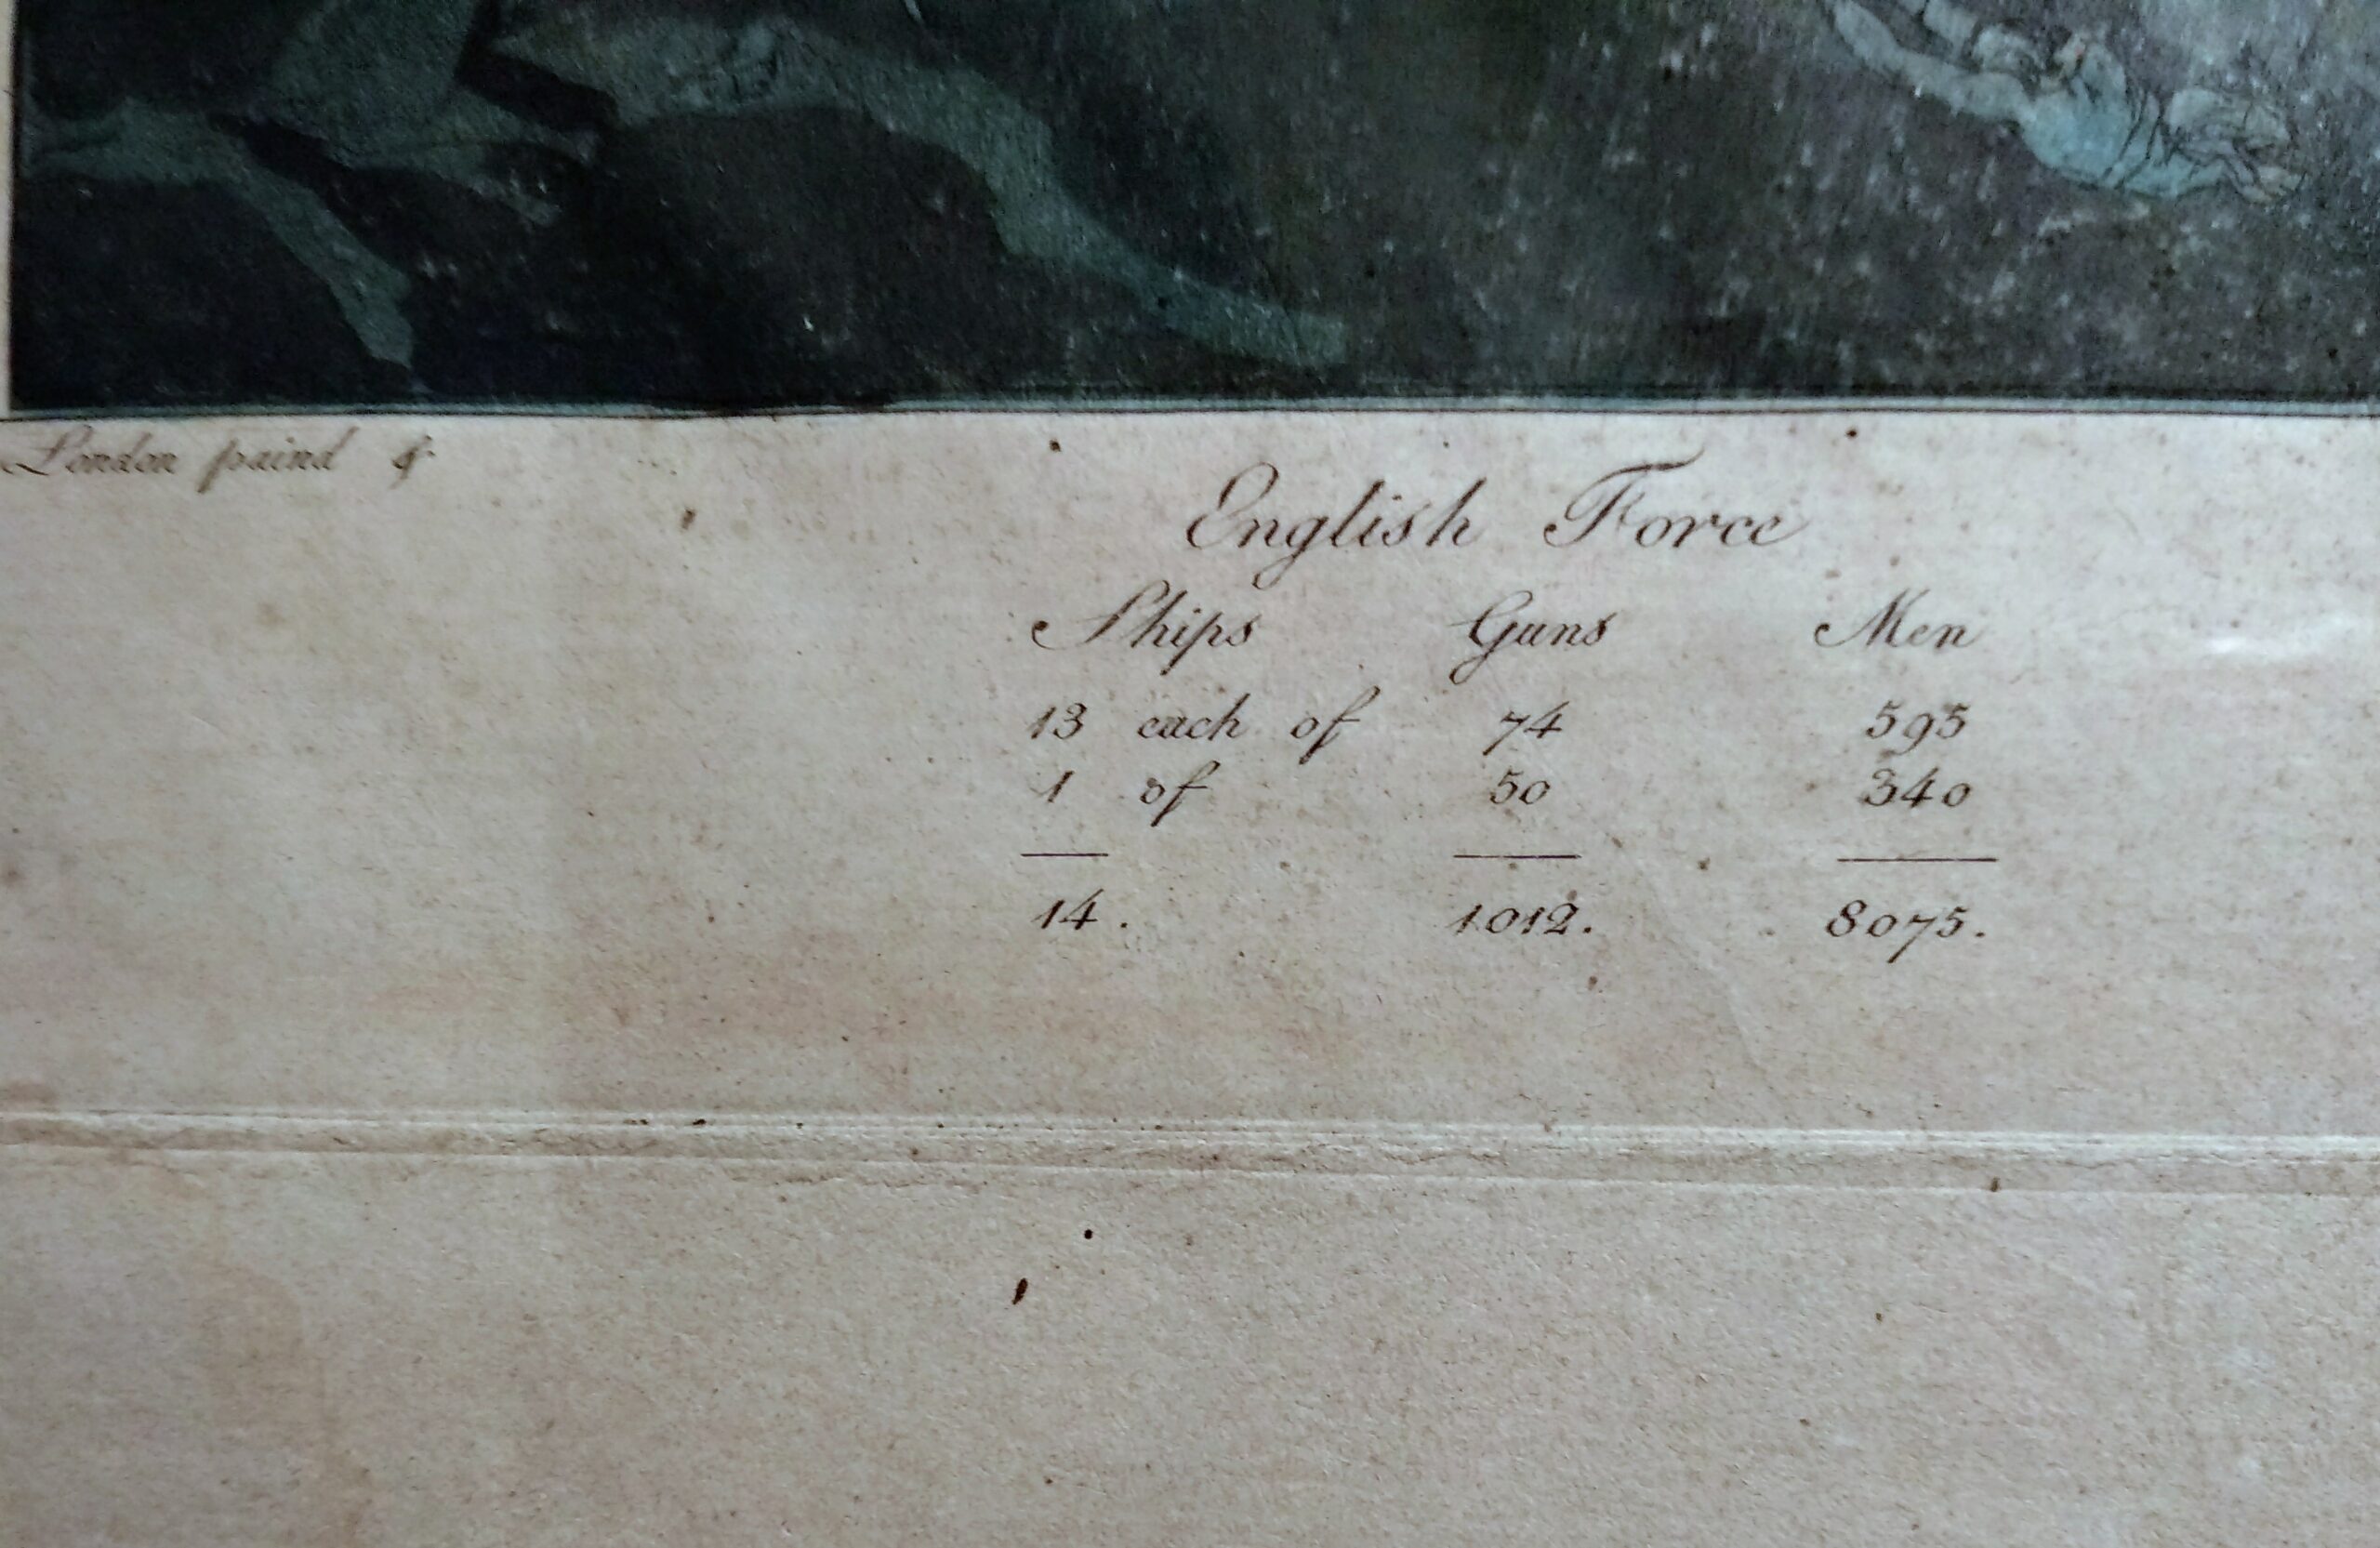 London paind &
English Force
Ships Guns Men
13 each of 74 595
1 of 50 340
14. 1012. 8075.